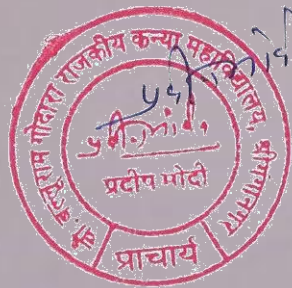 चौ. बल्लूराम गोदारा राजकीय कन्या महाविद्यालय, श्रीगंगानगर
प्रदीप मोदी
प्राचार्य